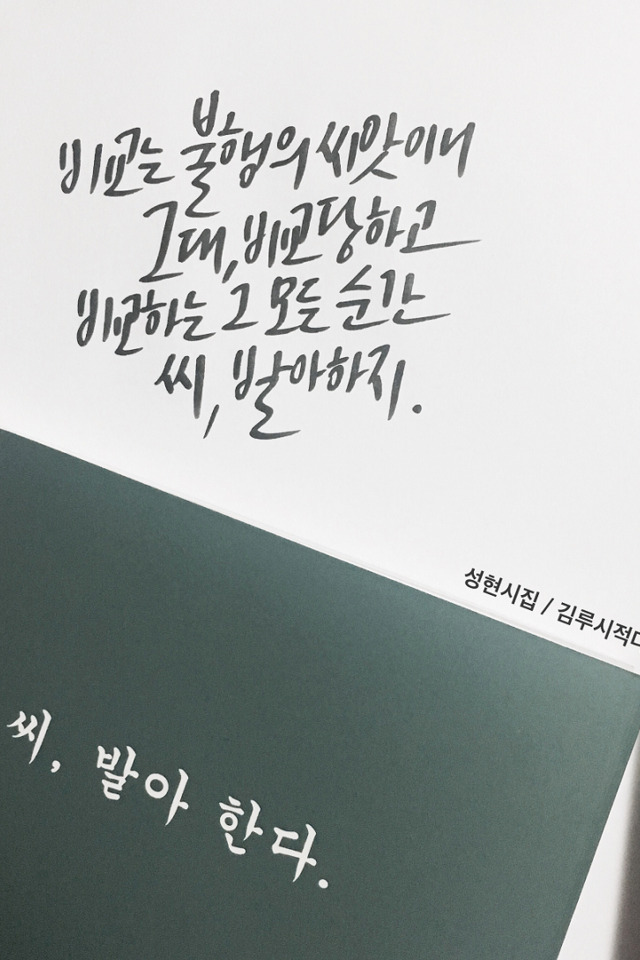 비교는 불행의 씨앗이니
그대, 비교당하고
비교하는 그 모든 순간
씨, 발아하지.
성현시집 / 김루시적
씨, 발아 한다.